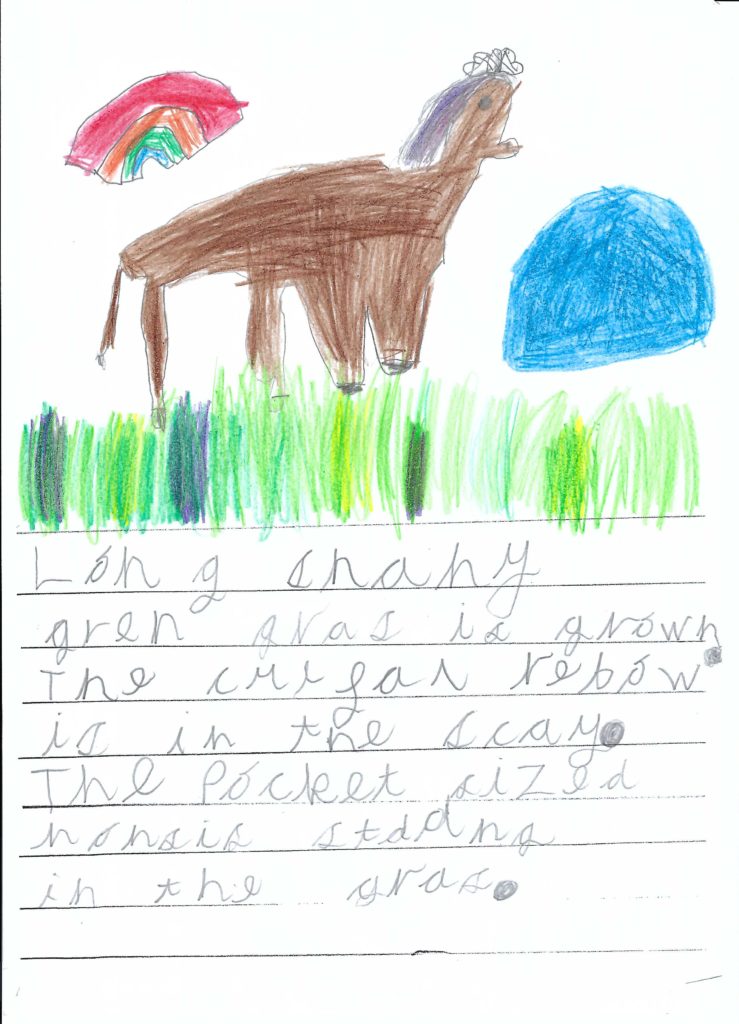 Long shahy
gren gras is grown.
The rebow
is in the scay.
The Pocket sized
horsis
in the gras.